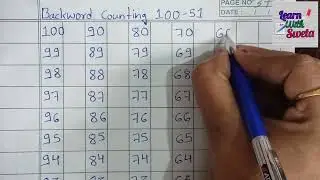 Backword Counting 100-51
PAGE NO
DATE
Learn
With
Sweta
100 90 80 70 60
99 89 79 69
98 88 78 68
97 87 77 67
96 86 76 66
95 85 75 65
94 84 74 64